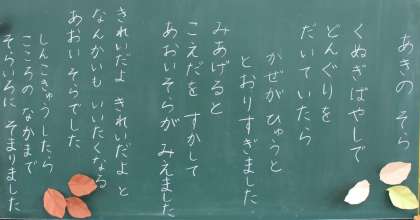 あきの そら
くぬぎばやしで
どんぐりを
だいていたら
かぜがひゅうと
とおりすぎました
みあげると
こえだを すかして
あおいそらが みえました
きれいだよ きれいだよ と
なんかいも いいたくなる
あおいそらでした
しんこきゅうしたら
こころの なかまで
そらいろに そまりました